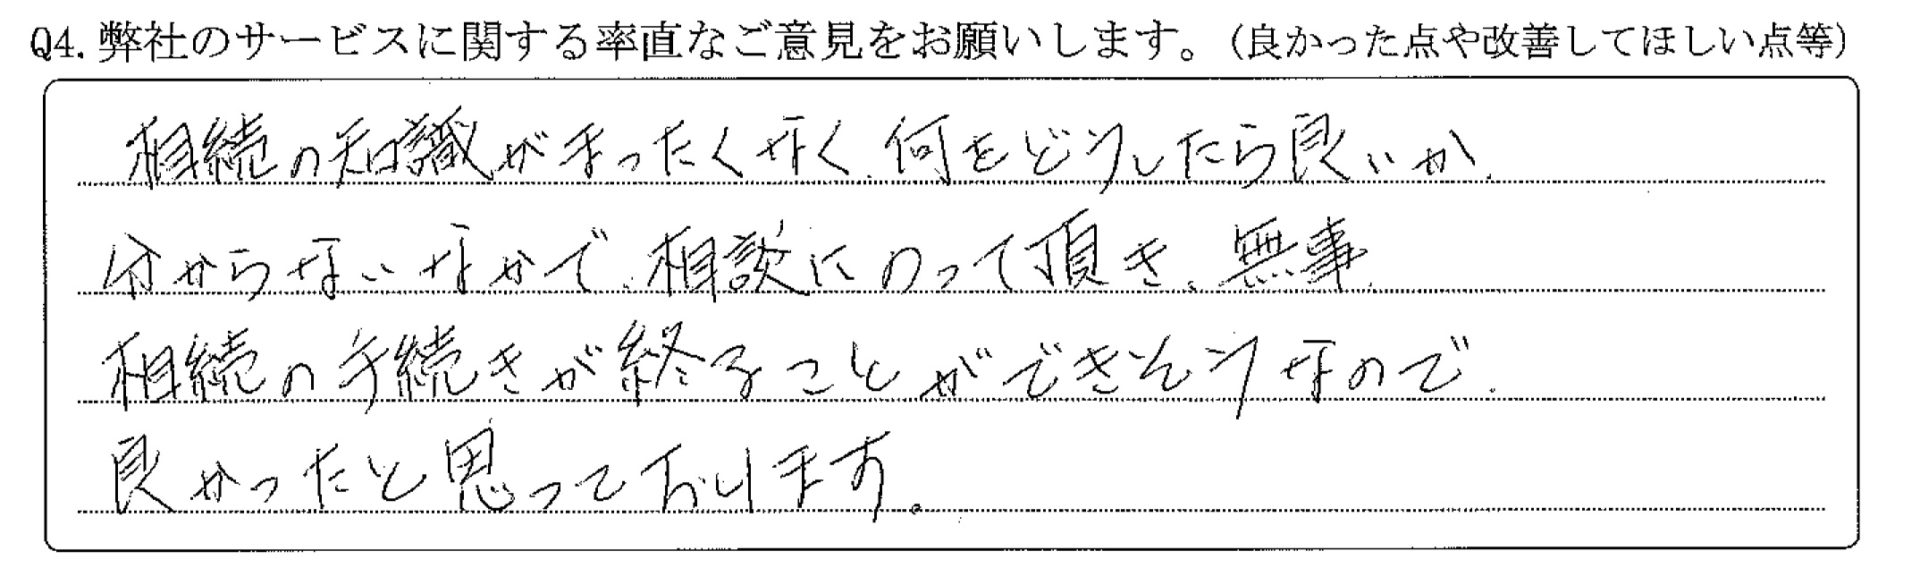 Q4. 弊社のサービスに関する率直なご意見をお願いします。(良かった点や改善してほしい点等)
相続の知識がまったくなく、何をどうしたら良いか、
分からないなかで、相談にのって頂き、無事、
相続の手続きが終ることができそうなので、
良かったと思っております。